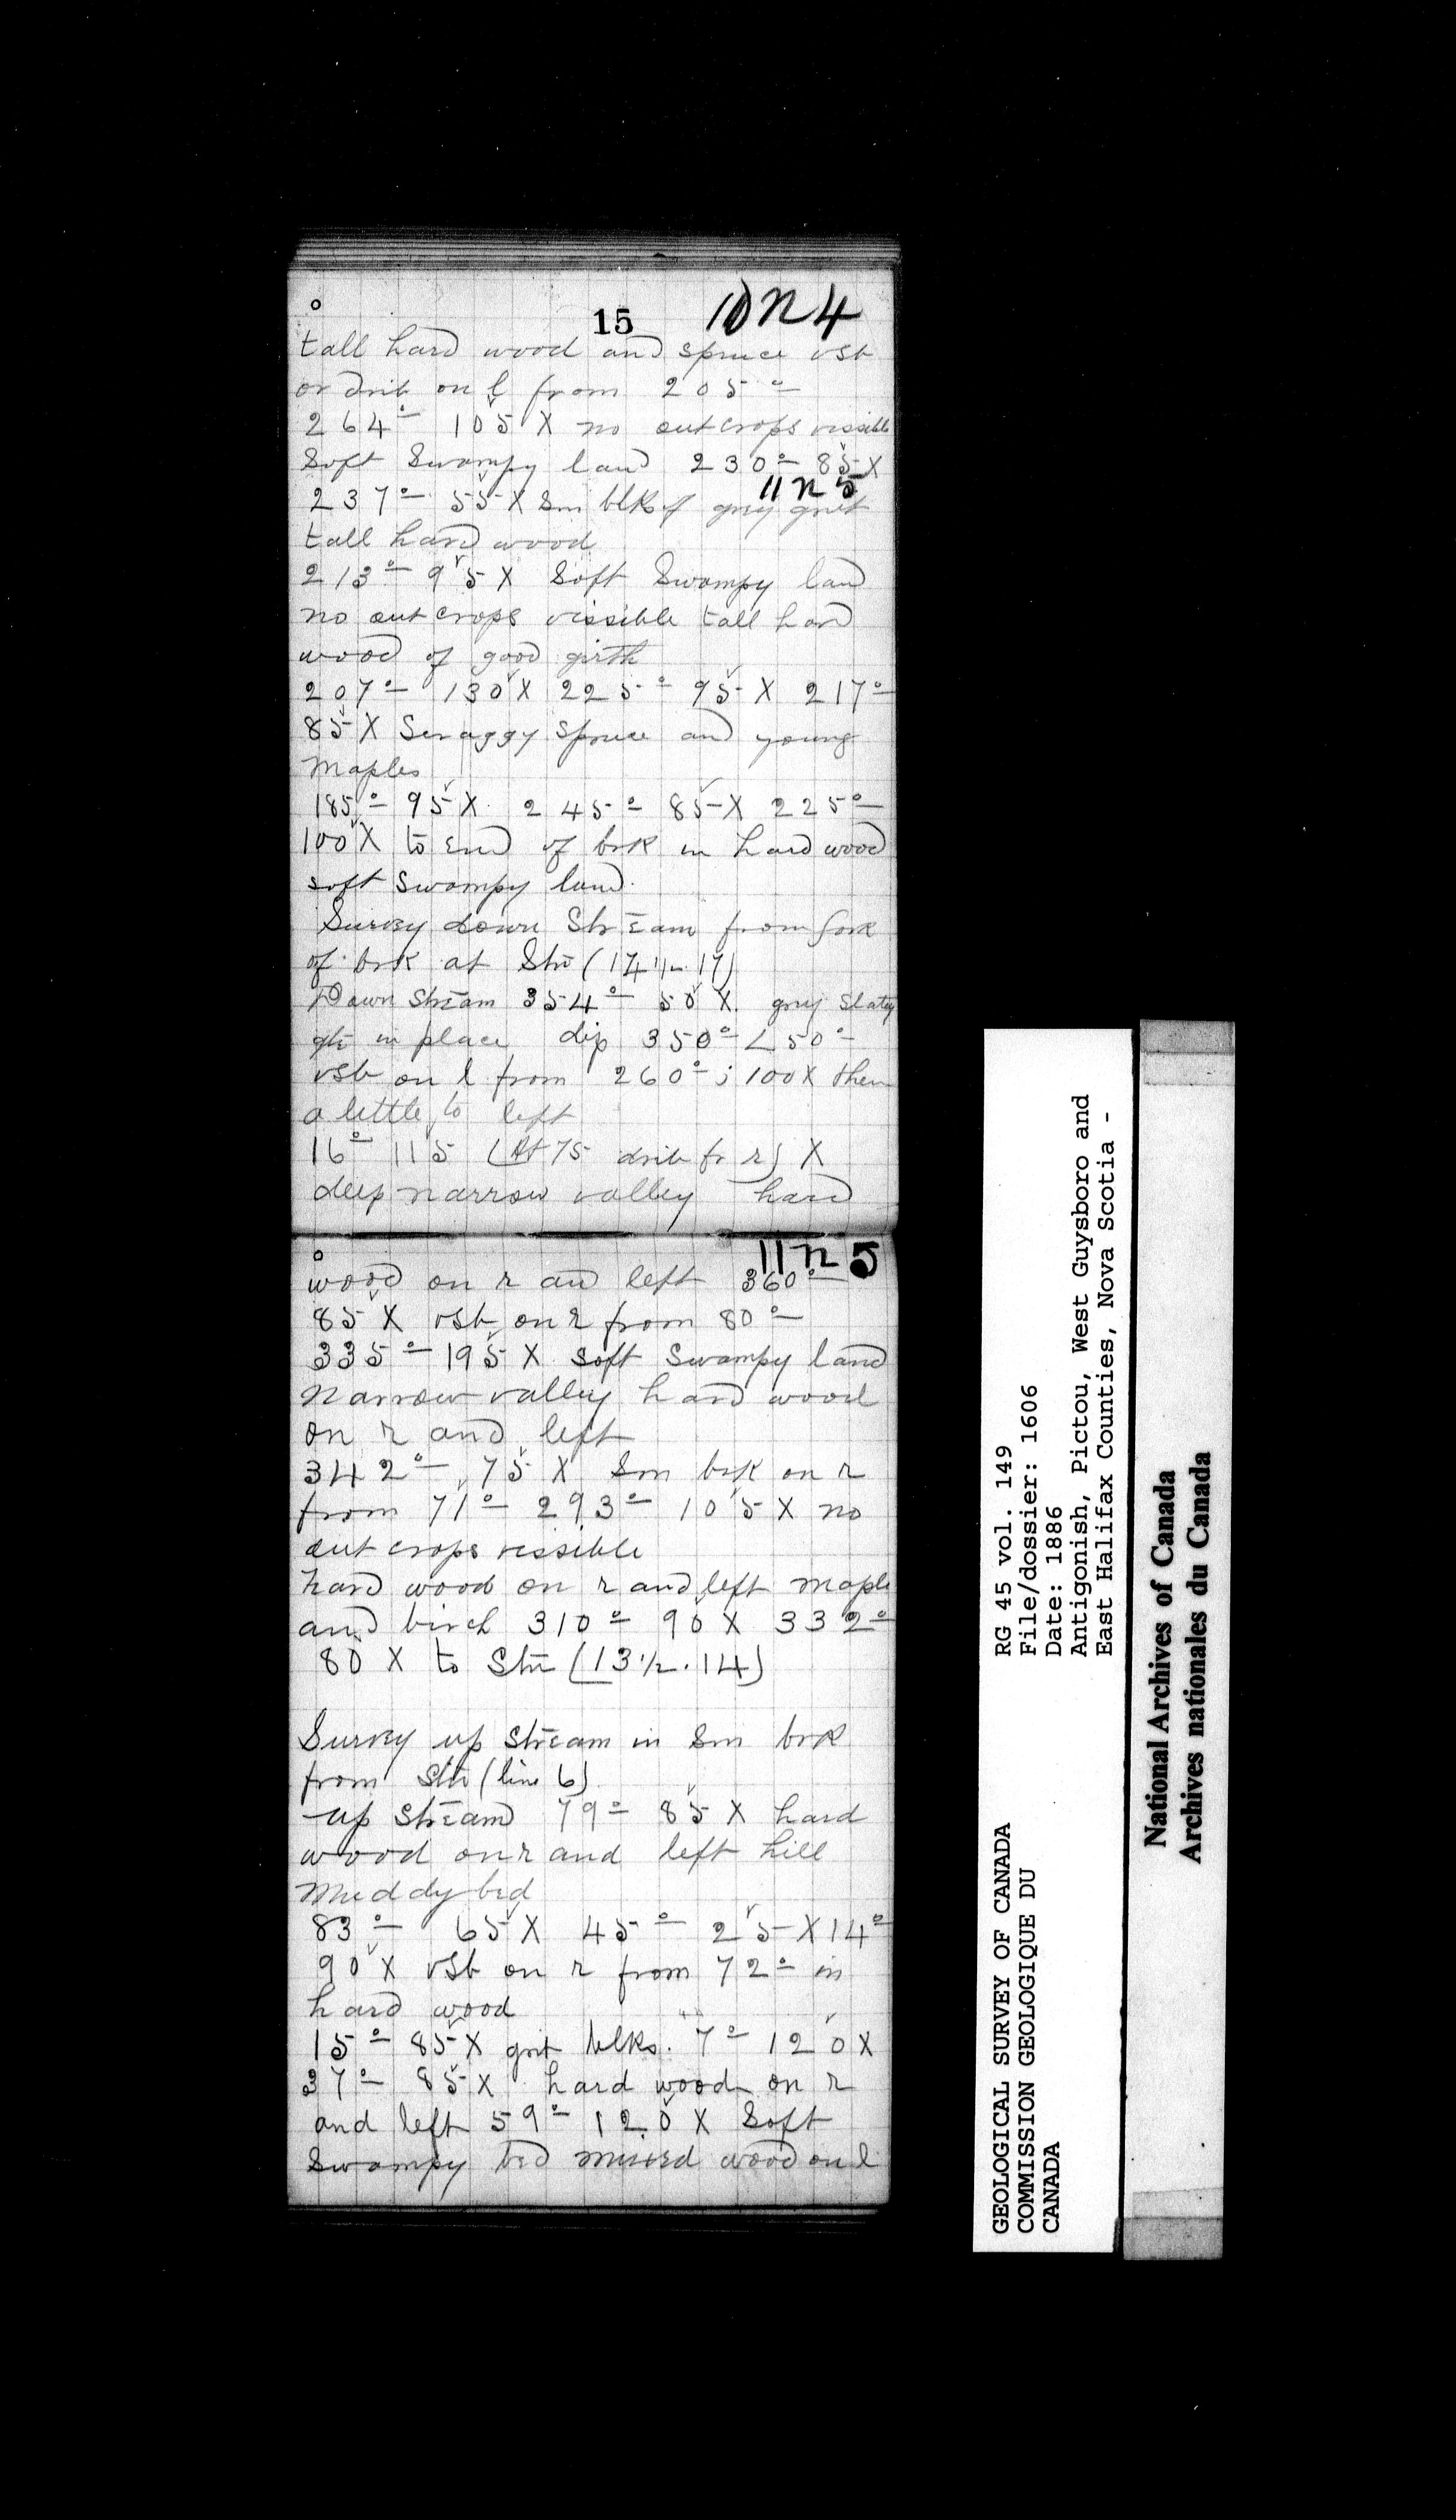 15 10 n 4
tall hard wood and spruce vsb
or drib on l from 205°
264° 105 X no out crops vissible
Soft Swampy land 230° 85 X
11 n 5
237° 55 X Sm blk of grey grit
tall hard wood
213° 95 X Soft Swampy land
no out crops vissible tall hard
wood of good girth
207° 130 X 225° 95 X 217°
85 X Scraggy Spruce and young
maples
185° 95 X 245° 85 X 225°
100 X to End of brk in hard wood
soft swampy land.
Survey down StrEam from fork
of brk at Stn (17 1/2 . 17)
Down StrEam 354° 50 X. grey Slaty
in place dip 350° ∠ 50°
vsb on l from 260° ; 100 X then
a little to left
16° 115 (At 75 drib fr r) X
deep narrow valley hard
11 n 5
wood on r and left 360°
85 X vsb on r from 80°
335° 195 X soft Swampy land
Narrow valley hard wood
on r and left
342° 75 X Sm brk on r
from 71° 293° 105 X no
out crops vissible
hard wood on r and left maple
and birch 310° 90 X 332°
80 X to Stn (13 1/2 . 14)
Survey up stream in Sm brk
from Stn (line 6)
up StrEam 79° 85 X hard
wood on r and left hill
Muddy bed
83° 65 X 45° 25 X 14°
90 X vsb on r from 72° in
hard wood
15° 85 X grit blks. 7° 120 X
37° 85 X hard wood on r
and left 59° 120 X Soft
Swampy bed mixed wood on l
GEOLOGICAL SURVEY OF CANADA
COMMISSION GEOLOGIQUE DU
CANADA
RG 45 vol. 149
File/dossier: 1606
Date: 1886
Antigonish, Pictou, West Guysboro and
East Halifax Counties, Nova Scotia -
National Archives of Canada
Archives nationales du Canada